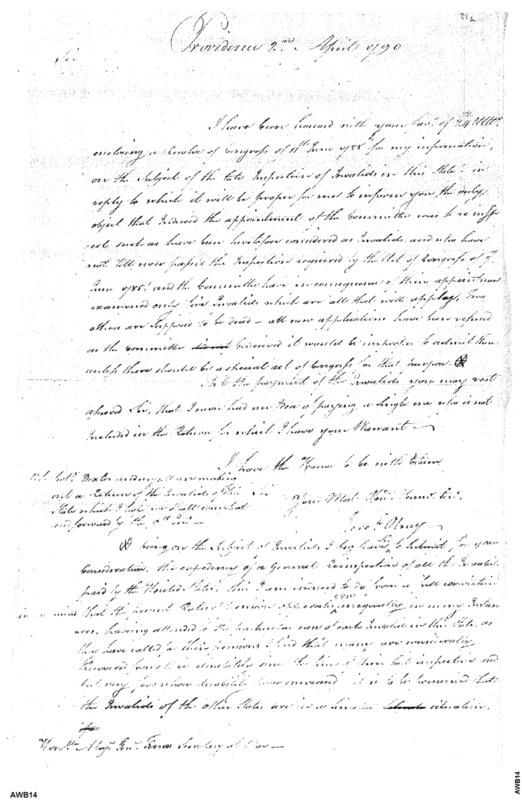 Providence 2nd April 1790
Sir
I have been honored with your favr. of 24th Ultr.
enclosing a Resolve of Congress of 11th June 1788 for my information,
on the Subject of the late Inspection of Invalids in this State: in
reply to which it will be proper for me to inform you, the only
object that induced the appointment of the Committee was to re insp
ect such as have been heretofore considered as Invalids, and who have
not till now passed the Inspection required by the Act of Congress of 7
June 1785: and the Committee have in consequence of their appointment
examined only five Invalids which are all that will apply,
others are supposed to be dead – all new applications have been refused
as the committee conceived it would be improper to admit them
unless there should be a special act of Congress for that purpose.
As to the payment of the Invalids you may rest
assured Sir, that I never had an Idea of paying a single one who is not
included in the Return for which I have your Warrant –
I have the Honor to be with Esteem
Sir
Your Most Obedt. Humb. Ser.
Jere. h Olney
Dexter and myself are making
out a Return of the Invalids of this
State which I hope we shall complete
and forward by the
being on the Subject of Invalids I beg leave to submit for your
consideration, the expediency of a General Reinspection of all the Invalids
paid by the United States, this I am induced to do from a full conviction
in my mind that the present Rates of Pension operate very unequally in many Instan
ces, having attended to the particular case of each Invalid in this State, as
they have called for their pensions I find that many are considerably
recovered from their disability since the time of their last inspection and
but very few whose disability have increased it is to be presumed that
the Invalids of the other States are in a similar situation.
Honble. Majr. Genl. Knox Secretary at War –
AWB14
AWB14